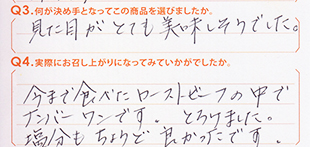 Q3.何が決め手となってこの商品を選びましたか。
見た目がとても美味しそうでした。
Q4.実際にお召し上がりになってみていかがでしたか。
今まで食べたローストビーフの中で
ナンバーワンです。とろけました。
塩分もちょうど良かったです。